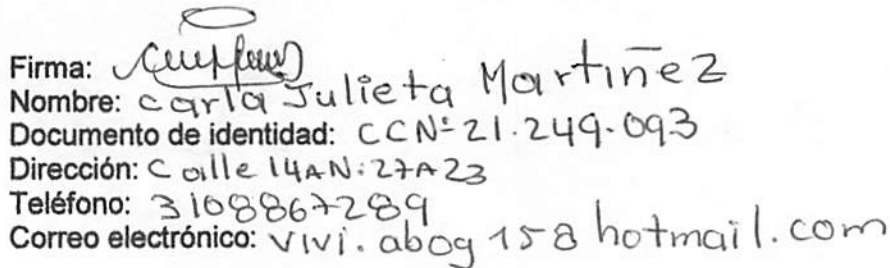 Firma:
Nombre: Carla Julieta Martiñez
Documento de identidad: CCNº 21.249.093
Dirección: Calle 14AN:27A23
Teléfono: 3108867289
Correo electrónico: vivi.abog158hotmail.com